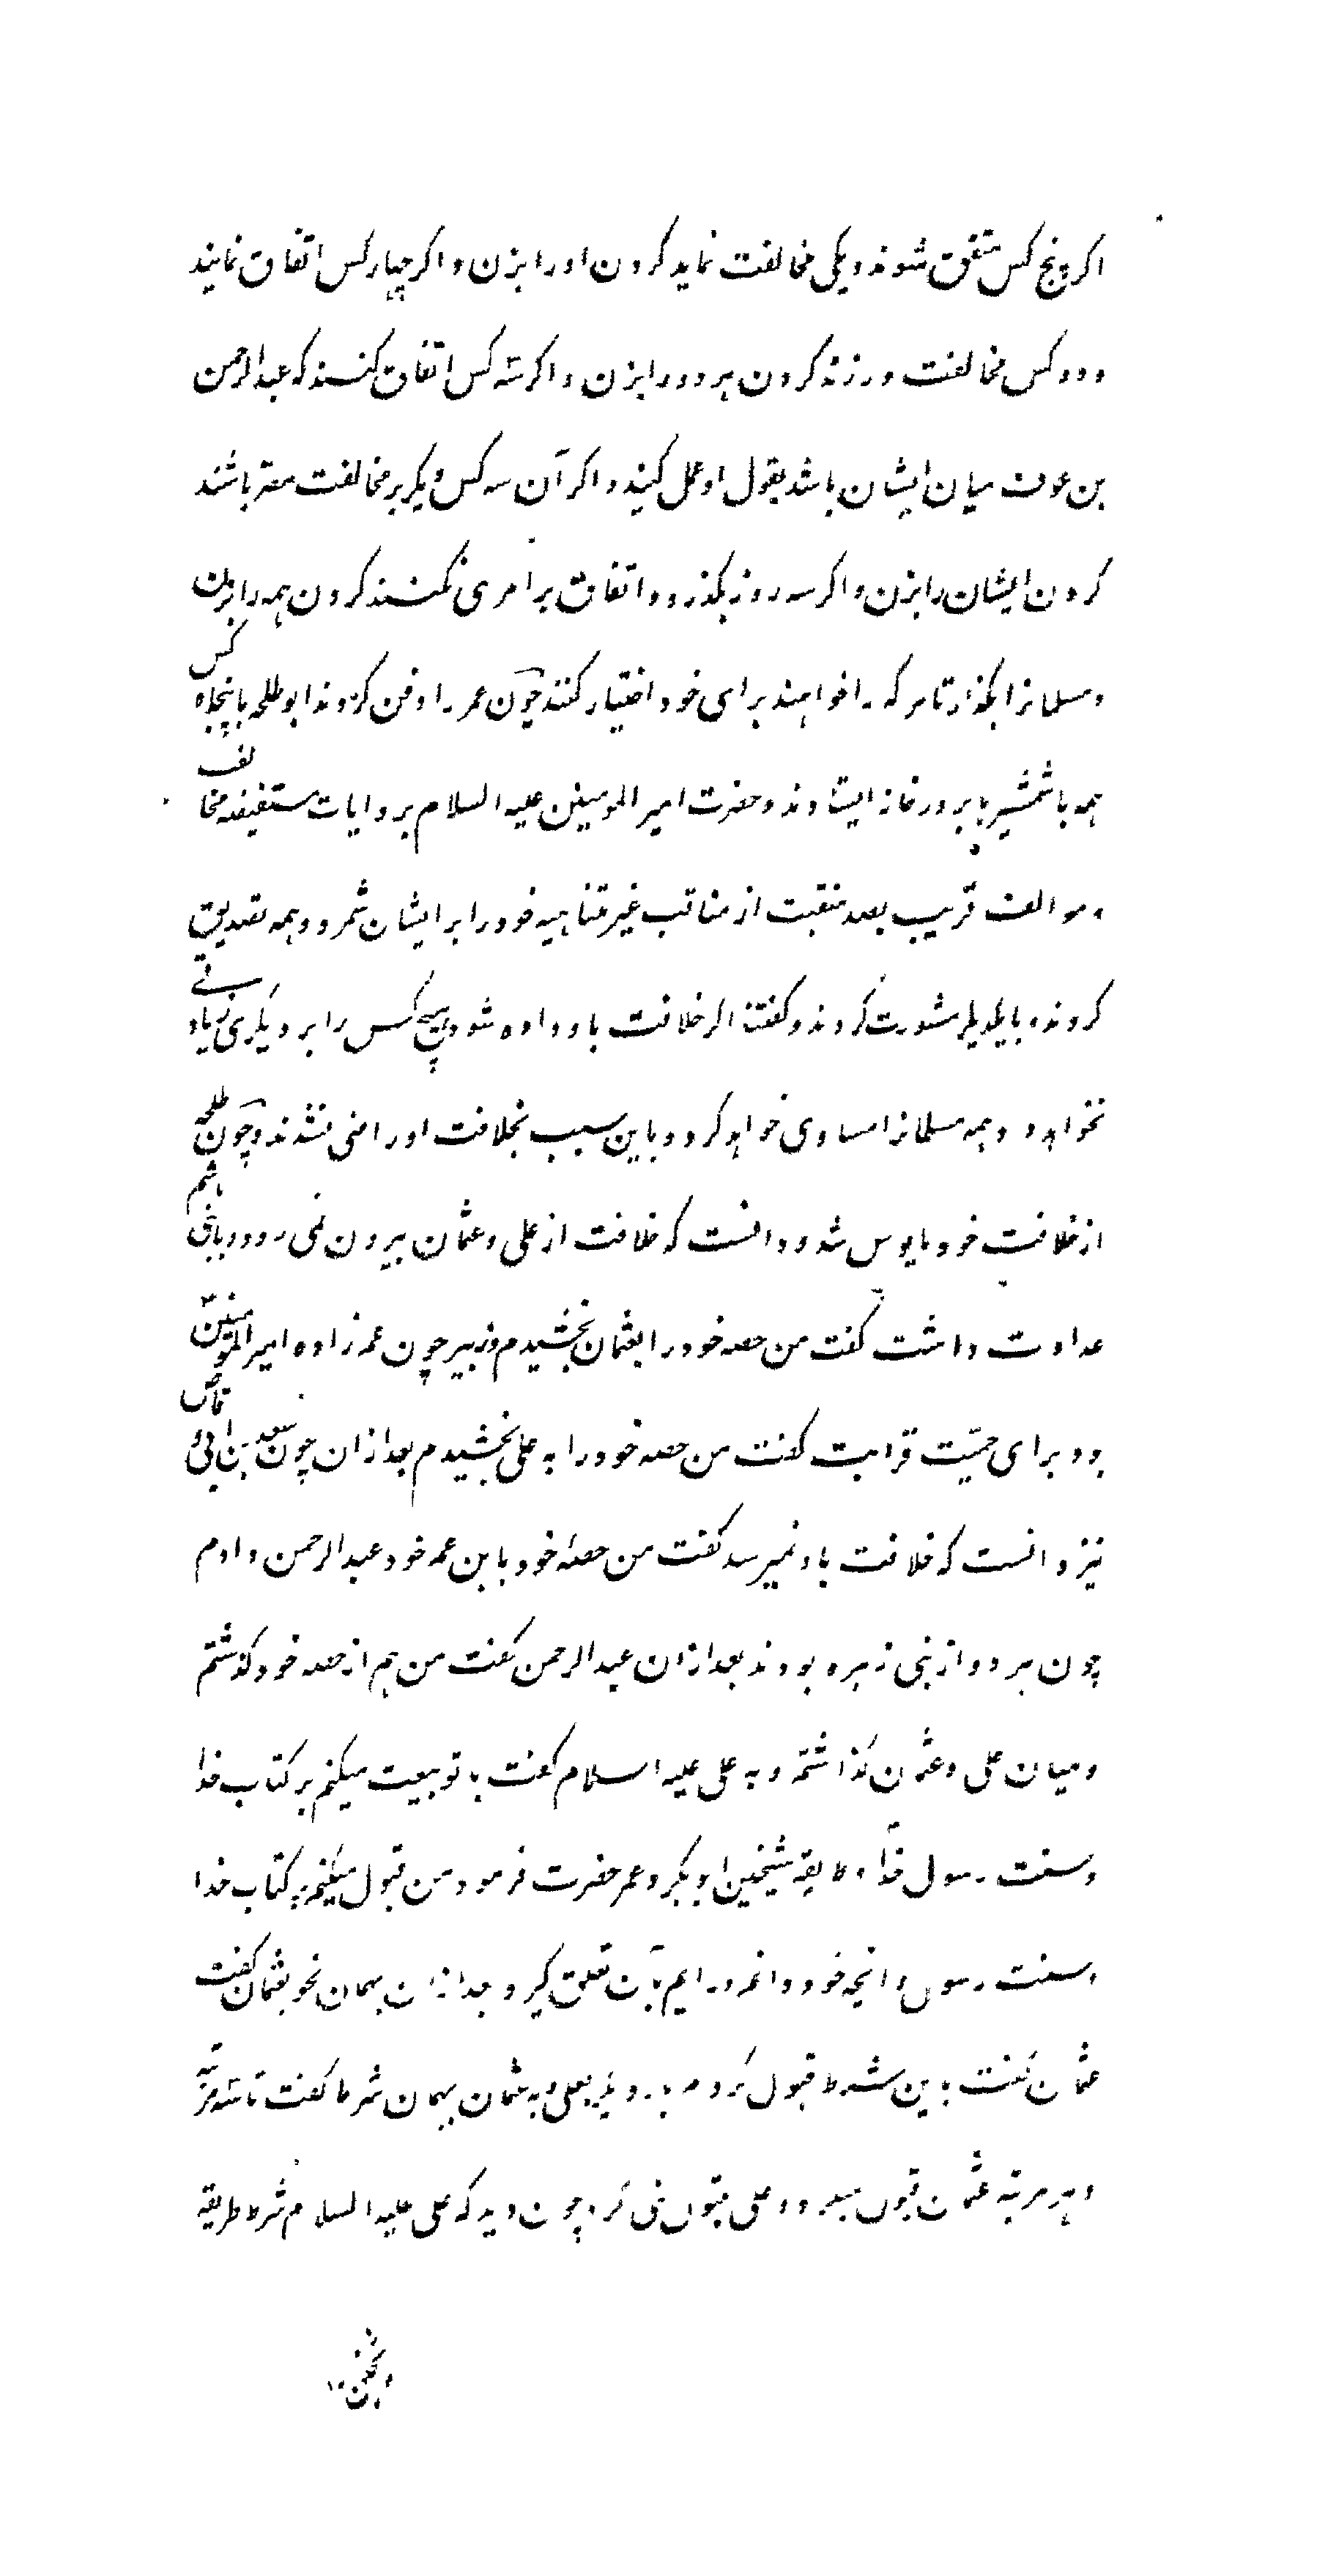 اکر پنج کس متفق شوند و یکی مخالفت نماید کردن اورا بزن و اکر چهار کس اتفاق نمایند
و دو کس مخالفت ورزند کردن هر دو را بزن و اکر سه کس اتفاق کنند که عبدالرحمن
بن عوف میان ایشان باشد بقول او عمل کنید و اکر آن سه کس دیکر بر مخالفت مصر باشند
کردن ایشان را بزن و اکر سه روز بکذرد و اتفاق بر امری نکنند کردن همه را بزن
و مسلمانرا بکذار تا هر که را خواهند برای خود اختیار کنند چون عمر را دفن کردند ابو طلحه با پنجاه کس
همه با شمشیرها بر در خانه ایستادند و حضرت امیر المومنین علیه السلام بروایات مستفیضه مخالف
و موالف قریب بصد منقبت از مناقب غیر متناهیه خود را بر ایشان شمرد و همه تصدیق
کردند و با یکدیکر مشورت کردند و کفتند اکر خلافت باو داده شود هیچ کس را بر دیکری زیادتے
نخواهد داد و همه مسلمانرا مساوی خواهد کرد و باین سبب بخلافت او راضی نشدند و چون طلحه
از خلافت خود مایوس شد و دانست که خلافت از علی و عثمان بیرون نمی رود و با بنی هاشم
عداوت داشت کفت من حصه خود را بعثمان بخشیدم و زبیر چون عمه زاده امیر المومنین
بود برای حمیت قرابت کفت من حصه خود را به علی بخشیدم بعد ازان چون سعد بن ابی وقاص
نیز دانست که خلافت باو نمیرسد کفت من حصه خود بابن عمه خود عبدالرحمن دادم
چون هر دو از بنی زهره بودند بعد ازان عبدالرحمن کفت من هم از حصه خود کذشتم
و میان علی و عثمان کذاشتم و به علی علیه السلام کفت با تو بیعت میکنم بر کتاب خدا
و سنت رسول خدا و طریقه شیخین ابوبکر و عمر حضرت فرمود من قبول میکنم بر کتاب خدا
و سنت رسول و انچه خود دانم و رایم بآن تعلق کیرد بعد ازان بهمان نحو بعثمان کفت
عثمان کفت باین شرط قبول کردم بار دیکر بعلی و به عثمان بهمان شرط کفت تا سه مرتبه
و هر مرتبه عثمان قبول میکرد و علی قبول نمی کرد چون دید که علی علیه السلام شرط طریقه
شیخین